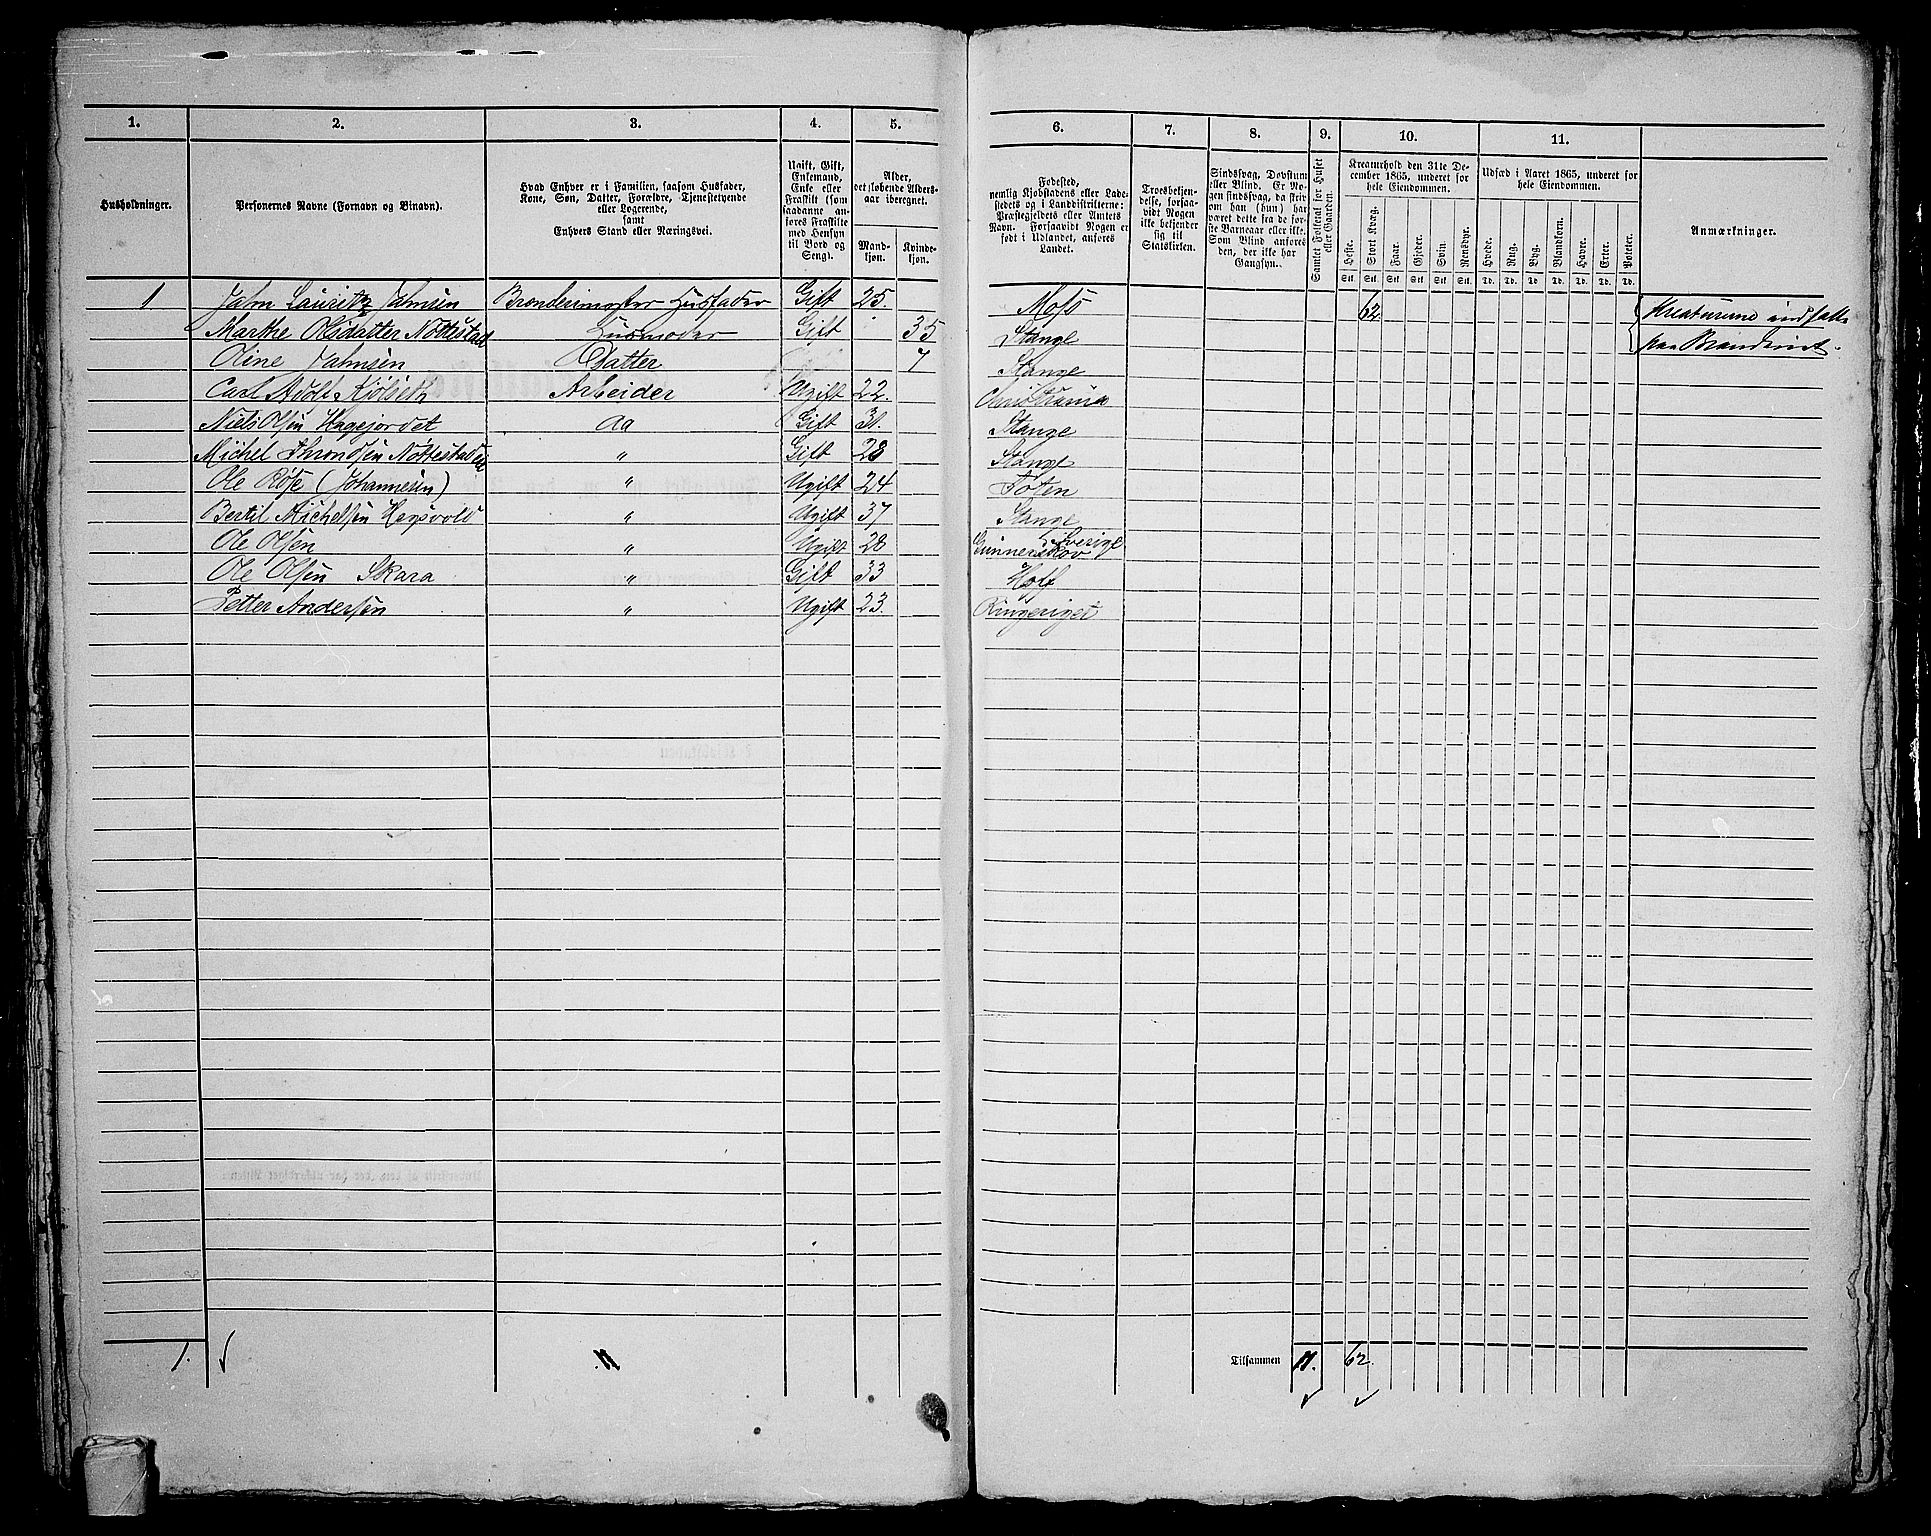 1. 2. 3. 4. 5. 6. 7. 8. 9. 10. 11.
Husholdninger.
Personernes Navne (Fornavn og Binavn).
Hvad Enhver er i Familien, saasom Husfader,
Kone, Søn, Datter, Forældre, Tjenestetyende
eller Logerende,
samt
Enhvers Stand eller Næringsvei.
Ugift, Gift,
Enkemand,
Enke eller
Fraskilt (som
saadanne an-
føres Fraskilte
med Hensyn
til Bord og
Seng).
Alder,
det løbende Alders-
aar iberegnet.
Mand-
kjøn.
Kvinde-
kjøn.
Fødested,
nemlig Kjøbstadens eller Lade-
stedets og i Landdistrikterne:
Præstegjeldets eller Amtets
Navn. Forsaavidt Nogen er
født i Udlandet, anføres
Landet.
Troesbekjen-
delse, forsaa-
vidt Nogen
ikke bekjender
sig til
Statskirken.
Sindssvag, Døvstum
eller Blind. Er No-
gen sindssvag, da skriv
om han (hun) har
været dette fra de før-
ste Barneaar eller ikke.
Som Blind anføres
den, der ikke har
Gangsyn.
Samlet Folketal for Huset
eller Gaarden.
Kreaturhold den 31te De-
cember 1865, underet for
hele Eiendommen.
Heste. Stort Kvæg. Faar. Gjeder. Svin. Rensdyr.
Stk. Stk. Stk. Stk. Stk. Stk.
Udsæd i Aaret 1865, underet for
hele Eiendommen.
Hvede. Rug. Byg. Blandkorn. Havre. Erter. Poteter.
Td. Td. Td. Td. Td. Td. Td.
Anmærkninger.
1 Jahn Lauritz Jahnsen Brænderimester Husfader Gift 25. Moss 62 Kreaturene indsatte
Marthe Olsdatter Nøttestad Husmoder Gift 35 Stange paa Brænderiet.
Oline Jahnsen Datter 7 Stange
Carl Adolf Kjølseth Arbeider Ugift 22. Christiania
Niels Olsen Hagejordet do Gift 31. Stange
Michel Throndsen Nøttestad " Gift 28 Stange
Ole Røse (Johannesen) " Ugift 24 Toten
Bertil Michelsen Hagsvold " Ugift 37 Stange
Ole Olsen " Ugift 28 Gunnerskov i Sverige
Ole Olsen Skara " Gift 33 Holf
Petter Andersen " Ugift 23. Ringeriget
1. 11 Tilsammen 11. 62.